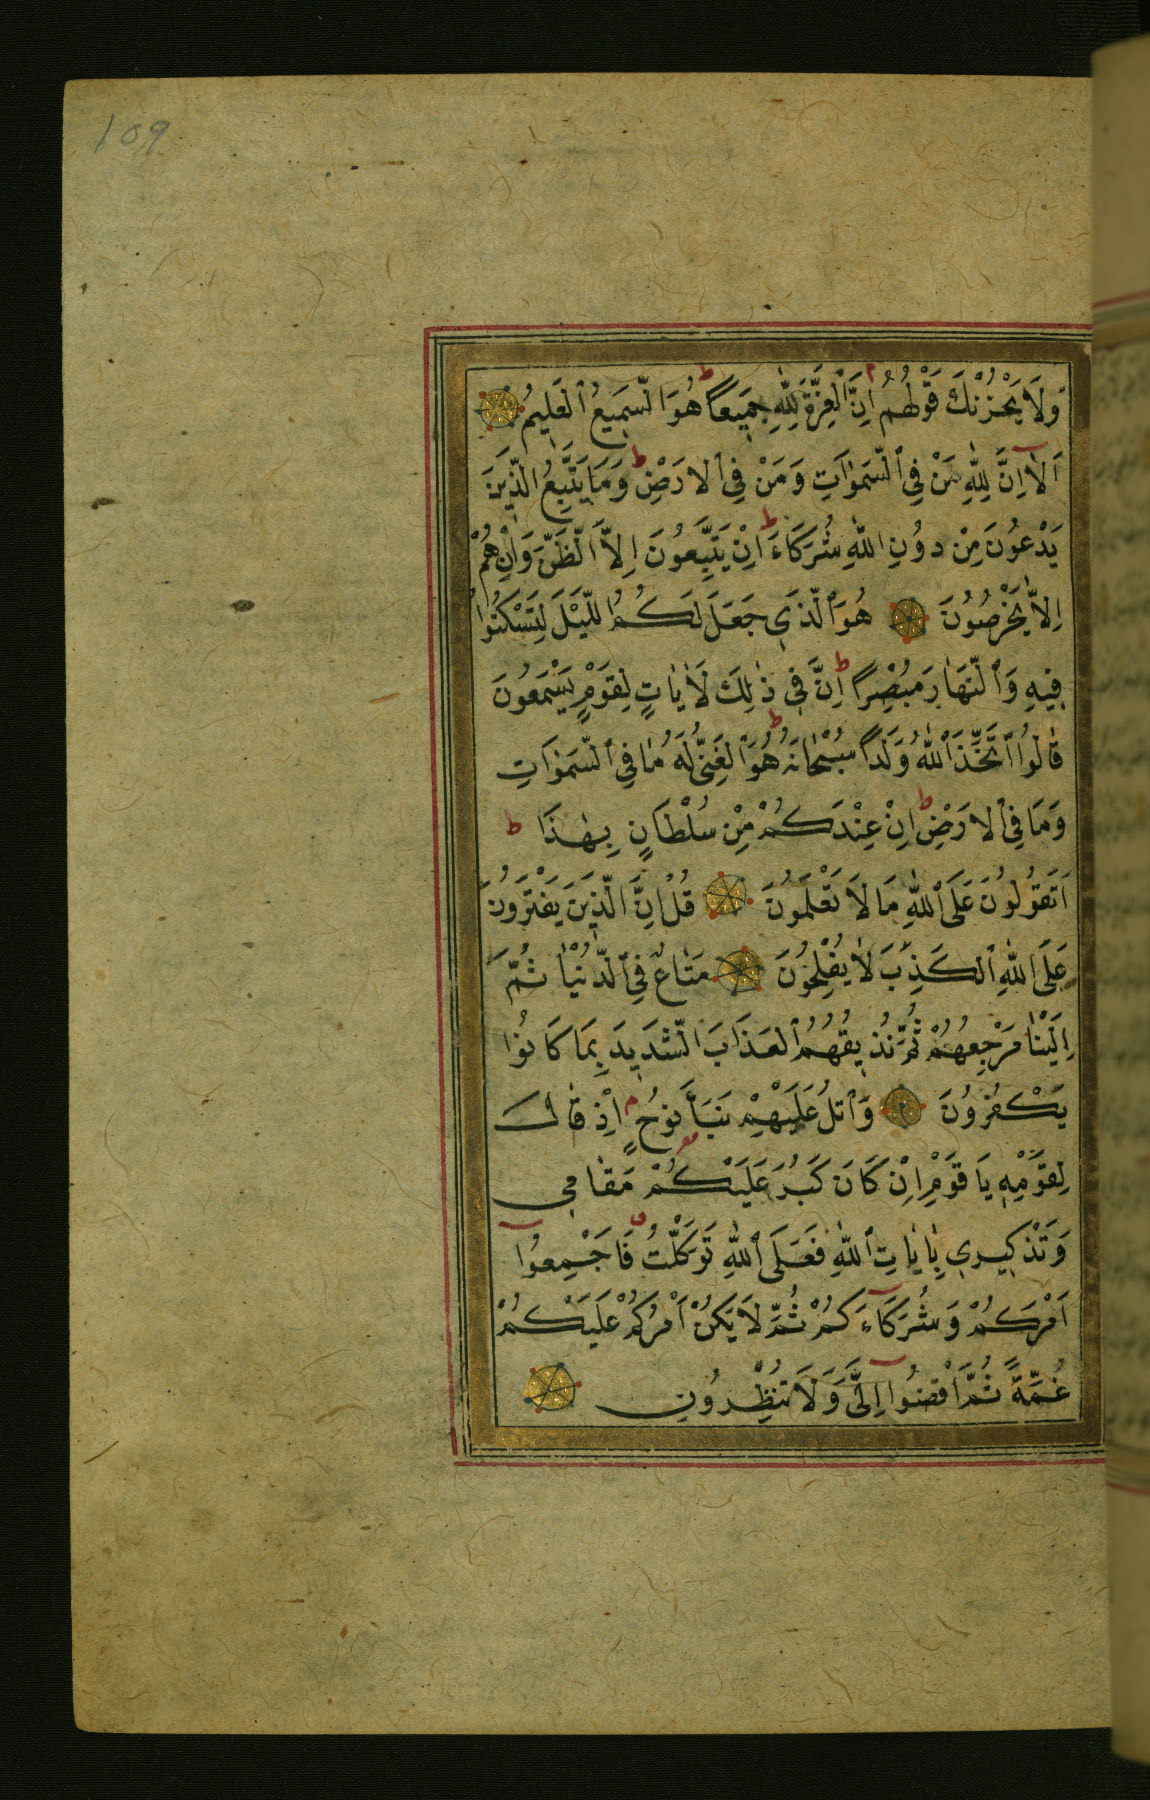 109
وَلَا يَحْزُنْكَ قَوْلُهُمْ م اِنَّ الْعِزَّةَ لِلّٰهِ جَمِيعًا ط هُوَ السَّمِيعُ الْعَلِيمُ
اَلَا اِنَّ لِلّٰهِ مَنْ فِي السَّمٰوَاتِ وَمَنْ فِي الْاَرْضِ ط وَمَا يَتَّبِعُ الَّذِينَ
يَدْعُونَ مِنْ دُونِ اللّٰهِ شُرَكَاءَ ط اِنْ يَتَّبِعُونَ اِلَّا الظَّنَّ وَاِنْ هُمْ
اِلَّا يَخْرُصُونَ هُوَ الَّذِي جَعَلَ لَكُمُ اللَّيْلَ لِتَسْكُنُوا
فِيهِ وَالنَّهَارَ مُبْصِرًا ط اِنَّ فِي ذٰلِكَ لَاٰيَاتٍ لِقَوْمٍ يَسْمَعُونَ
قَالُوا اتَّخَذَ اللّٰهُ وَلَدًا سُبْحَانَهُ ط هُوَ الْغَنِيُّ لَهُ مَا فِي السَّمٰوَاتِ
وَمَا فِي الْاَرْضِ ط اِنْ عِنْدَكُمْ مِنْ سُلْطَانٍ بِهٰذَا ط
اَتَقُولُونَ عَلَى اللّٰهِ مَا لَا تَعْلَمُونَ قُلْ اِنَّ الَّذِينَ يَفْتَرُونَ
عَلَى اللّٰهِ الْكَذِبَ لَا يُفْلِحُونَ مَتَاعٌ فِي الدُّنْيَا ثُمَّ
اِلَيْنَا مَرْجِعُهُمْ ثُمَّ نُذِيقُهُمُ الْعَذَابَ الشَّدِيدَ بِمَا كَانُوا
يَكْفُرُونَ وَاتْلُ عَلَيْهِمْ نَبَاَ نُوحٍ م اِذْ قَالَ
لِقَوْمِهِ يَا قَوْمِ اِنْ كَانَ كَبُرَ عَلَيْكُمْ مَقَامِي
وَتَذْكِيرِي بِاٰيَاتِ اللّٰهِ فَعَلَى اللّٰهِ تَوَكَّلْتُ فَاَجْمِعُوا
اَمْرَكُمْ وَشُرَكَاءَكُمْ ثُمَّ لَا يَكُنْ اَمْرُكُمْ عَلَيْكُمْ
غُمَّةً ثُمَّ اقْضُوا اِلَيَّ وَلَا تُنْظِرُونِ